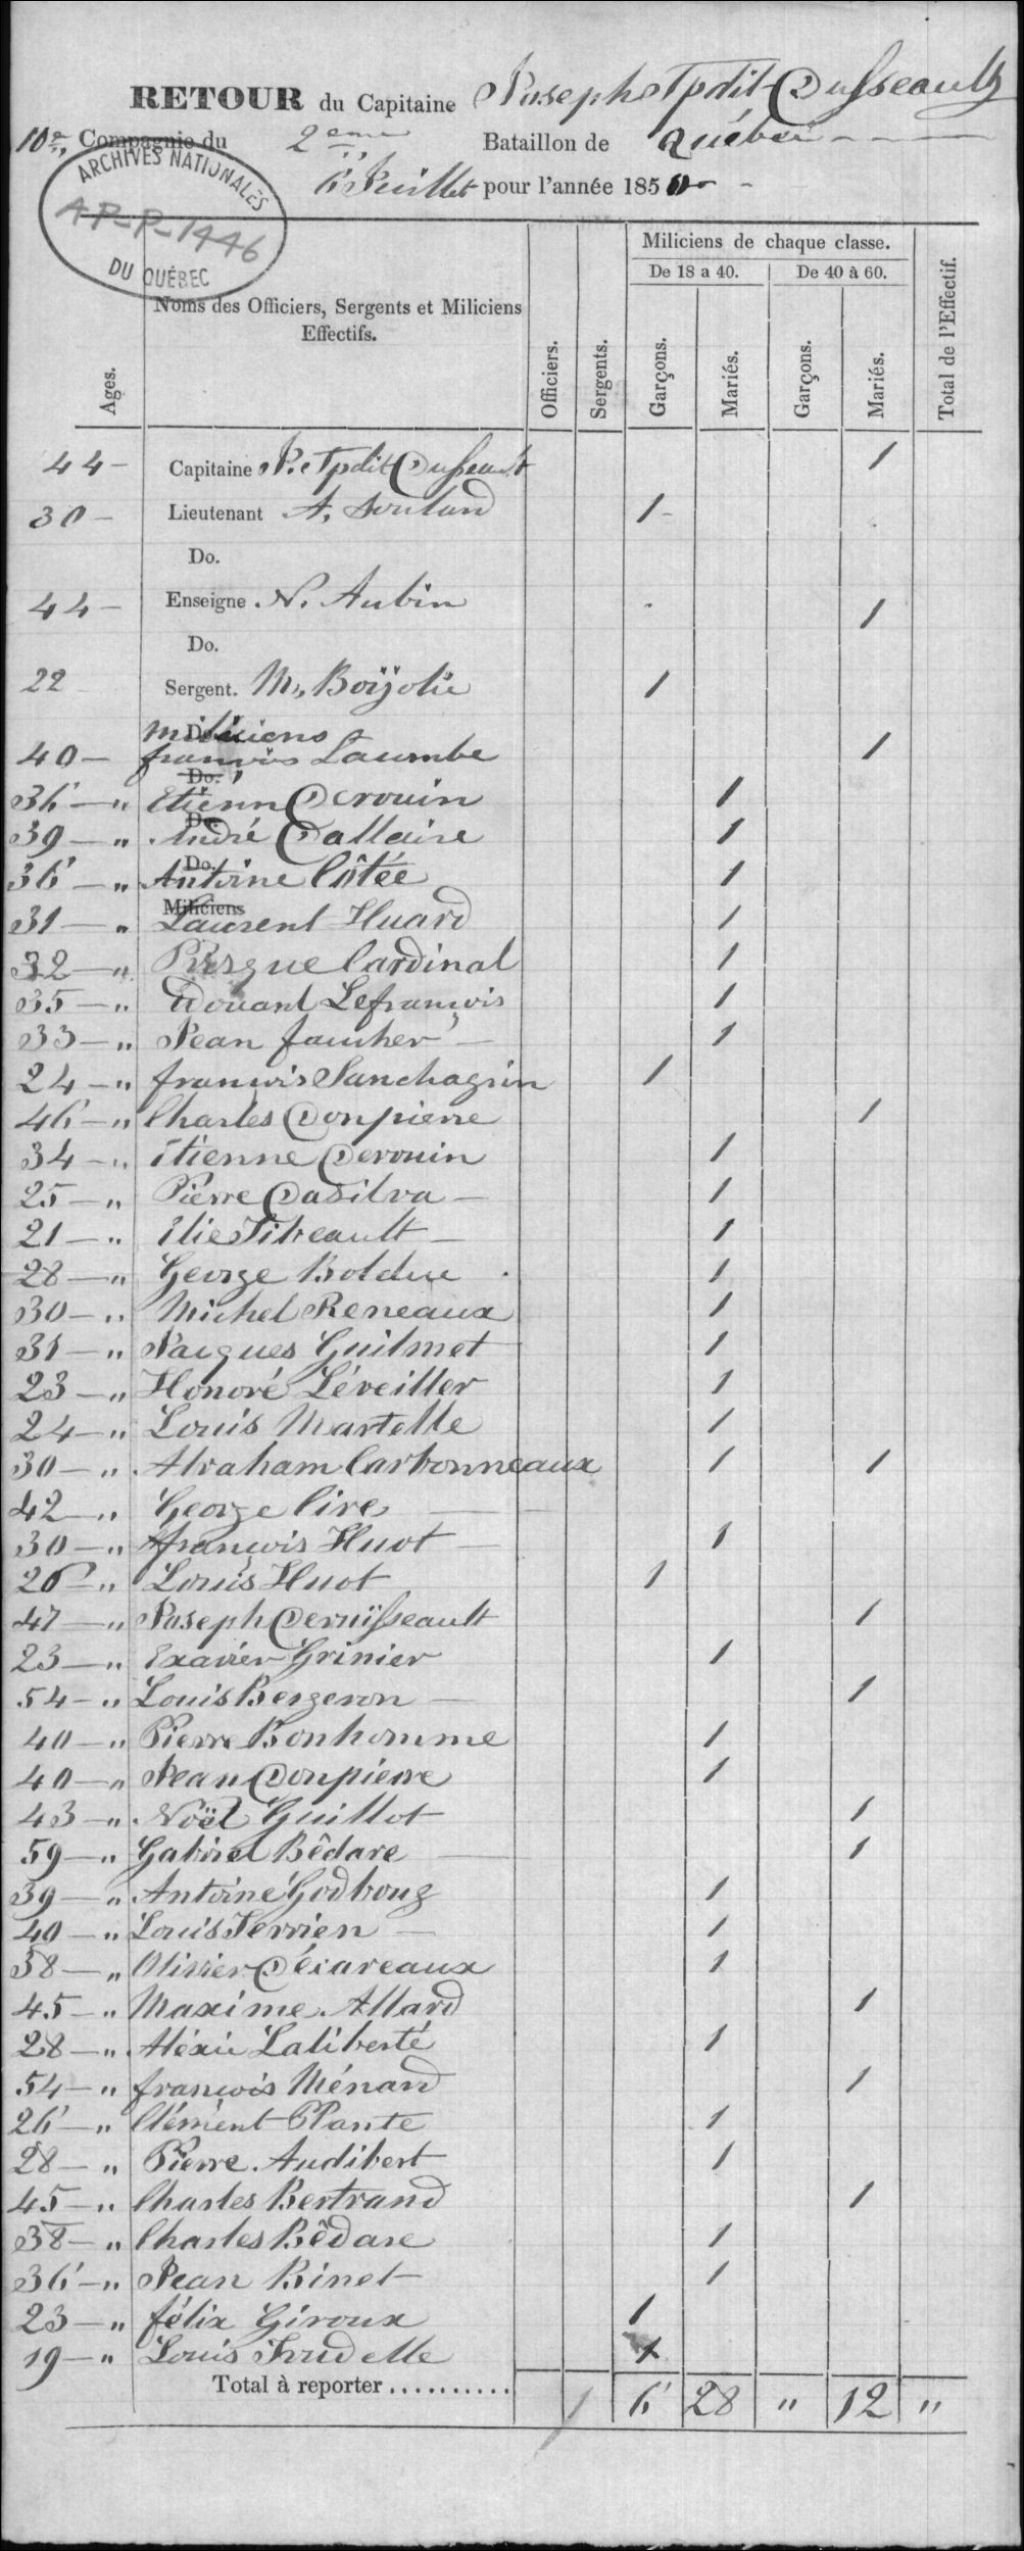 RETOUR du Capitaine Joseph Tpdit Dusseault
10e, Compagnie du 2eme Bataillon de Québec
6 Juillet pour l'année 1850
ARCHIVES NATIONALES
AP-P-1446
DU QUÉBEC
Miliciens de chaque classe.
De 18 a 40. De 40 à 60.
Ages. Noms des Officiers, Sergents et Miliciens Effectifs. Officiers. Sergents. Garçons. Mariés. Garçons. Mariés. Total de l'Effectif.
44 - Capitaine J. Tpdit Dusseault 1
30 - Lieutenant A, Soulard 1 -
Do.
44 - Enseigne N. Aubin 1
Do.
22 Sergent. M, Boijolie 1
miliciens
Do.
40 - françois Laumbe 1
Do.
36 - " Etienn Derouin 1
Do.
39 - " André Dallaire 1
Do.
36 - " Antoine Côtée 1
Miliciens
31 - " Laurent Huard 1
32 - " Presque Cardinal 1
35 - " Edouard Lefrançois 1
33 - " Jean faucher - 1
24 - " françois Sanchagrin 1
46 - " Charles Donpierre 1
34 - " Etienne Derouin 1
25 - " Pierre Dasilva - 1
21 - " Elie Tibeault - 1
28 - " George Bolduc 1
30 - " Michel Reneaux 1
31 - " Jacques Guilmet 1
23 - " Honoré Léveiller 1
24 - " Louis Martelle 1
30 - " Abraham Carbonneaux 1 1
42 - " George Cire
30 - " françois Huot - 1
26 - " Louis Huot 1
47 - " Joseph Deruisseault 1
23 - " Exavier Grinier 1
54 - " Louis Bergeron - 1
40 - " Pierre Bonhomme 1
40 - " Jean Donpierre 1
43 - " Noël Guillot 1
59 - " Gabriel Bêdare 1
39 - " Antoine Godbouz 1
40 - " Louis Terrien - 1
38 - " Olivier Décareaux 1
45 - " Maxime Allard 1
28 - " Aléxie Laliberté 1
54 - " françois Ménard 1
26 - " Clément Plante 1
28 - " Pierre Audibert 1
45 - " Charles Bertrand 1
38 - " Charles Bêdare 1
36 - " Jean Binet 1
23 - " félix Giroux 1
19 - " Louis Trudelle x
Total à reporter .......... 1 6 28 " 12 "